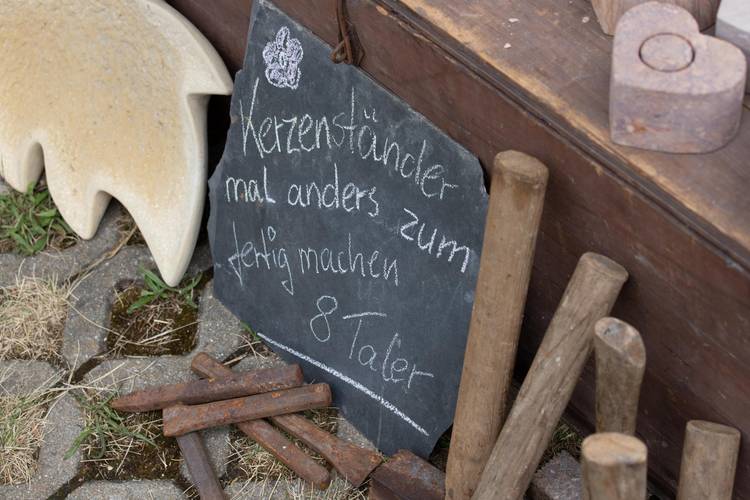 Kerzenständer
mal anders zum
fertig machen
8 Taler